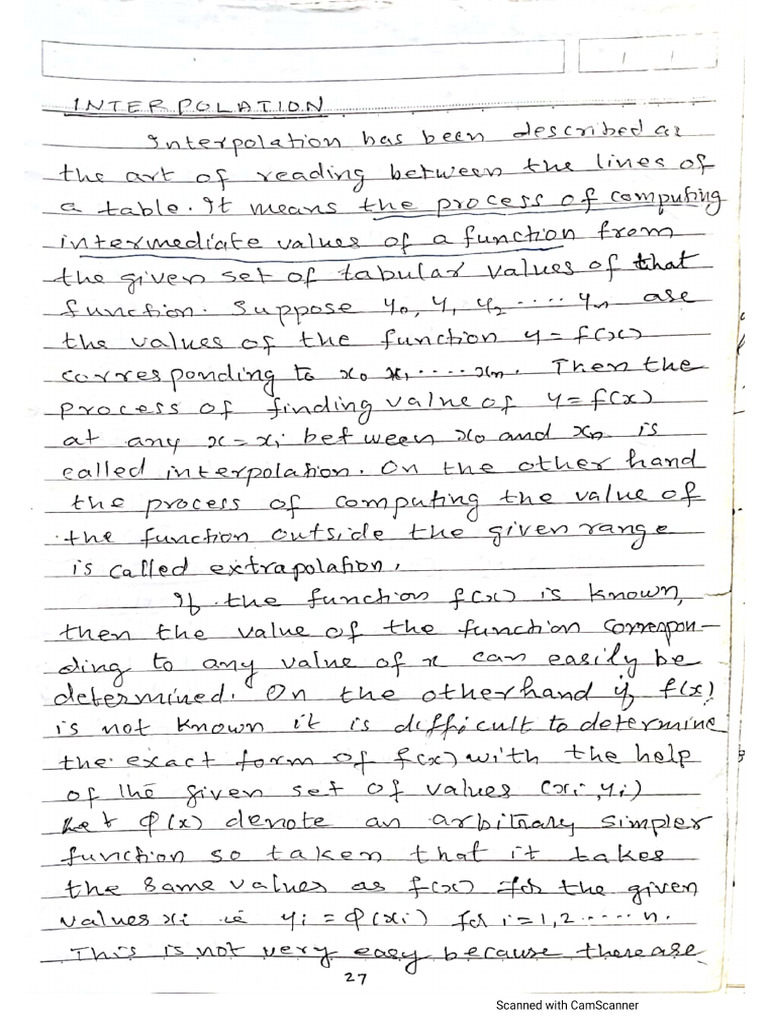 INTERPOLATION
Interpolation has been described as
the art of reading between the lines of
a table. It means the process of computing
intermediate values of a function from
the given set of tabular values of that
function. Suppose y₀, y₁ y₂ ..... yₙ are
the values of the function y = f(x)
corresponding to x₀ x₁ ..... xₙ. Then the
process of finding value of y = f(x)
at any x = xᵢ between x₀ and xₙ is
called interpolation. On the other hand
the process of computing the value of
the function outside the given range
is called extrapolation.
If the function f(x) is known,
then the value of the function correspon-
ding to any value of x can easily be
determined. On the otherhand if f(x)
is not known it is difficult to determine
the exact form of f(x) with the help
of the given set of values (xᵢ, yᵢ)
Let φ(x) denote an arbitrary simpler
function so taken that it takes
the same values as f(x) for the given
values xᵢ ie yᵢ = φ(xᵢ) for i = 1, 2 ..... n.
This is not very easy because there are
27
Scanned with CamScanner